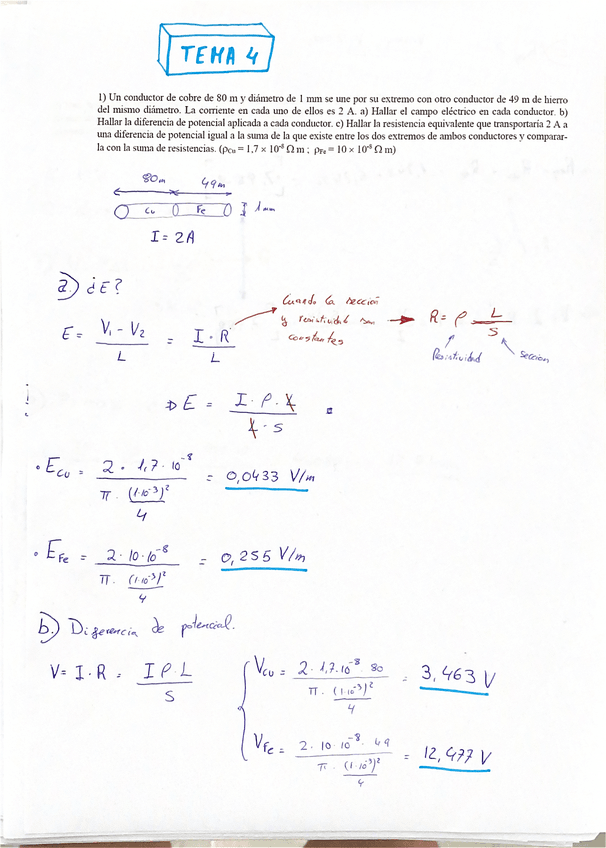 TEMA 4
1) Un conductor de cobre de 80 m y diámetro de 1 mm se une por su extremo con otro conductor de 49 m de hierro
del mismo diámetro. La corriente en cada uno de ellos es 2 A. a) Hallar el campo eléctrico en cada conductor. b)
Hallar la diferencia de potencial aplicada a cada conductor. c) Hallar la resistencia equivalente que transportaría 2 A a
una diferencia de potencial igual a la suma de la que existe entre los dos extremos de ambos conductores y comparar-
la con la suma de resistencias. (ρCu = 1,7 × 10⁻⁸ Ω m ; ρFe = 10 × 10⁻⁸ Ω m)
80m 49m
Cu Fe 1mm
I = 2A
a.) ¿E?
Cuando la sección
y resistividad son
constantes
R = ρ L/S
Resistividad Sección
E = (V₁ - V₂)/L = (I · R)/L
E = (I · ρ · L)/(L · S)
• ECu = (2 · 1,7 · 10⁻⁸)/(π · (1·10⁻³)²/4) = 0,0433 V/m
• EFe = (2 · 10 · 10⁻⁸)/(π · (1·10⁻³)²/4) = 0,255 V/m
b.) Diferencia de potencial.
V = I · R = (I ρ · L)/S
VCu = (2 · 1,7 · 10⁻⁸ · 80)/(π · (1·10⁻³)²/4) = 3,463 V
VFe = (2 · 10 · 10⁻⁸ · 49)/(π · (1·10⁻³)²/4) = 12,477 V